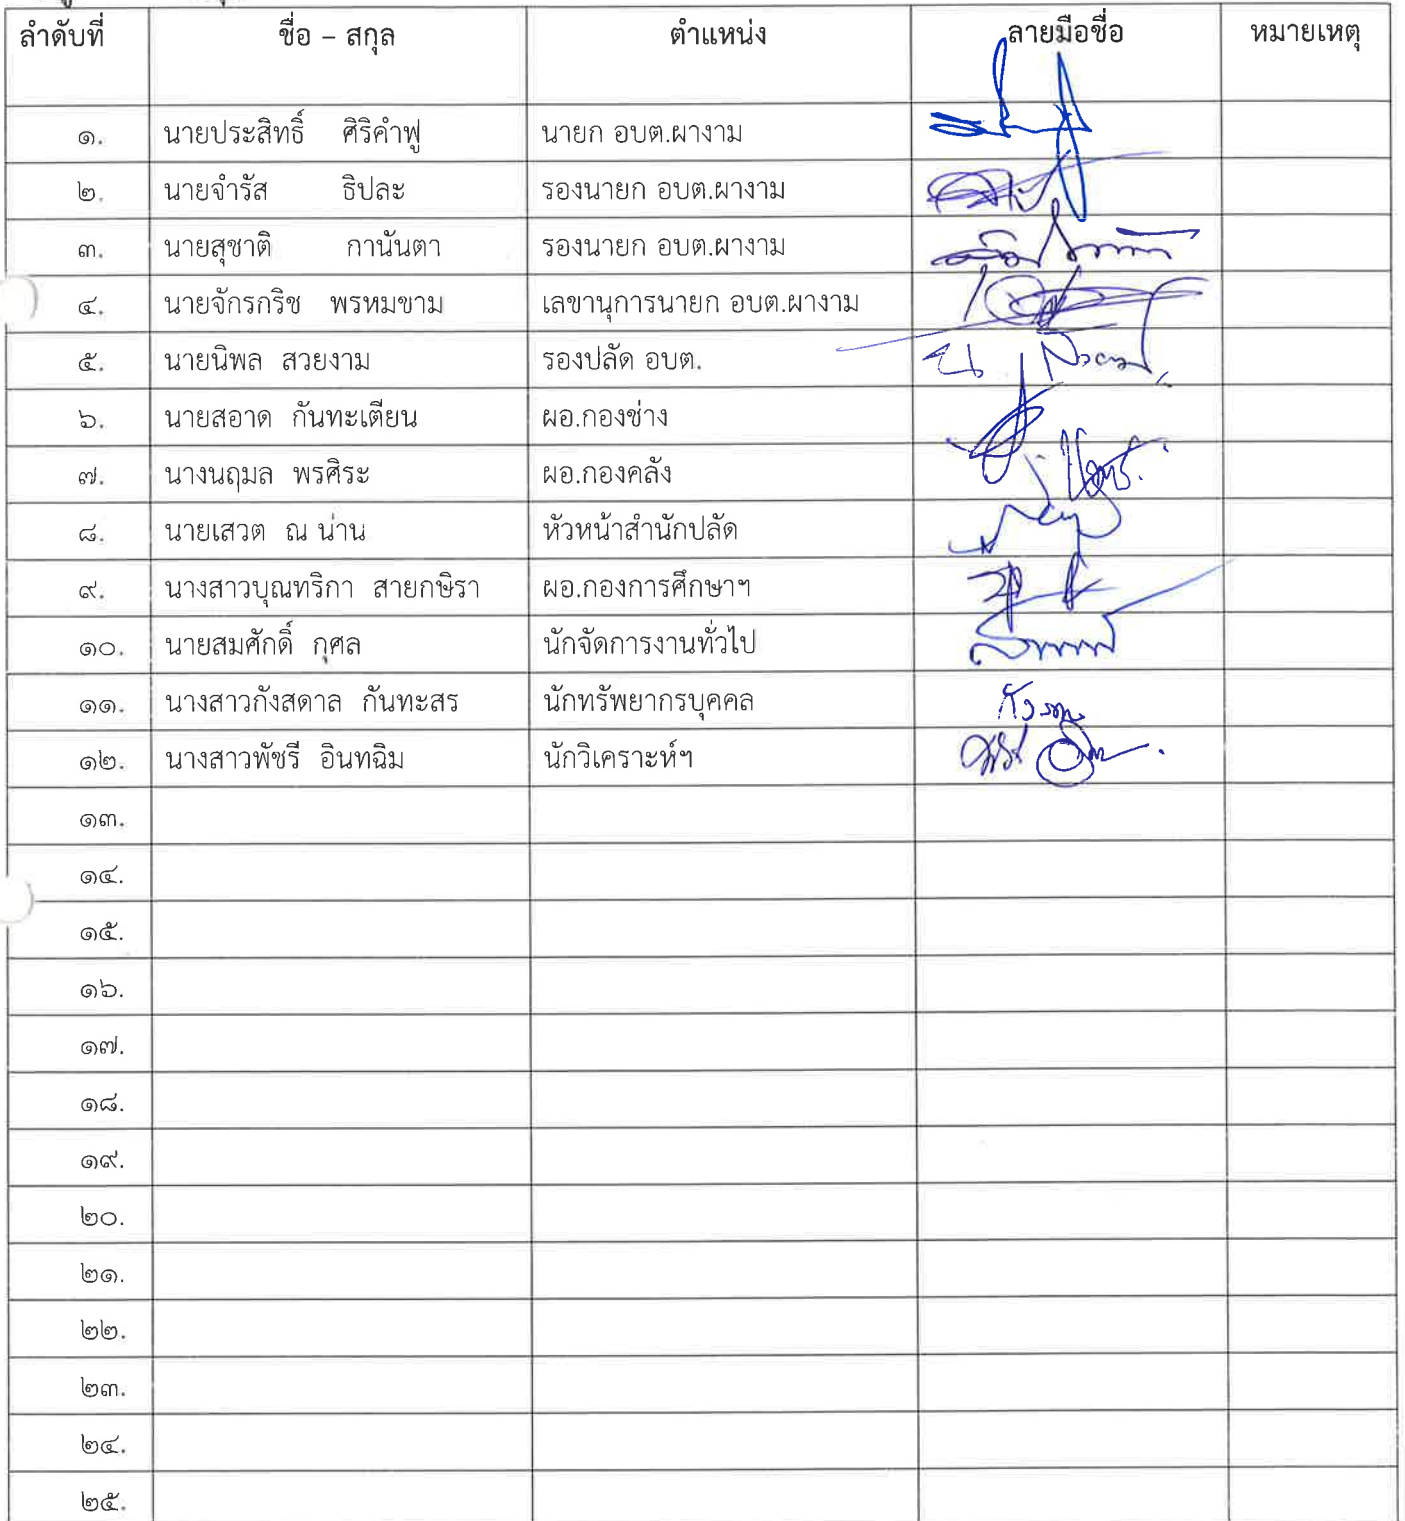 ลำดับที่ ชื่อ – สกุล ตำแหน่ง ลายมือชื่อ หมายเหตุ
๑. นายประสิทธิ์ ศิริคำฟู นายก อบต.ผางาม
๒. นายจำรัส ธิปละ รองนายก อบต.ผางาม
๓. นายสุชาติ กานันตา รองนายก อบต.ผางาม
๔. นายจักรกริช พรหมขาม เลขานุการนายก อบต.ผางาม
๕. นายนิพล สวยงาม รองปลัด อบต.
๖. นายสอาด กันทะเตียน ผอ.กองช่าง
๗. นางนฤมล พรศิระ ผอ.กองคลัง
๘. นายเสวต ณ น่าน หัวหน้าสำนักปลัด
๙. นางสาวบุณทริกา สายกษิรา ผอ.กองการศึกษาฯ
๑๐. นายสมศักดิ์ กุศล นักจัดการงานทั่วไป
๑๑. นางสาวกังสดาล กันทะสร นักทรัพยากรบุคคล
๑๒. นางสาวพัชรี อินทฉิม นักวิเคราะห์ฯ
๑๓.
๑๔.
๑๕.
๑๖.
๑๗.
๑๘.
๑๙.
๒๐.
๒๑.
๒๒.
๒๓.
๒๔.
๒๕.